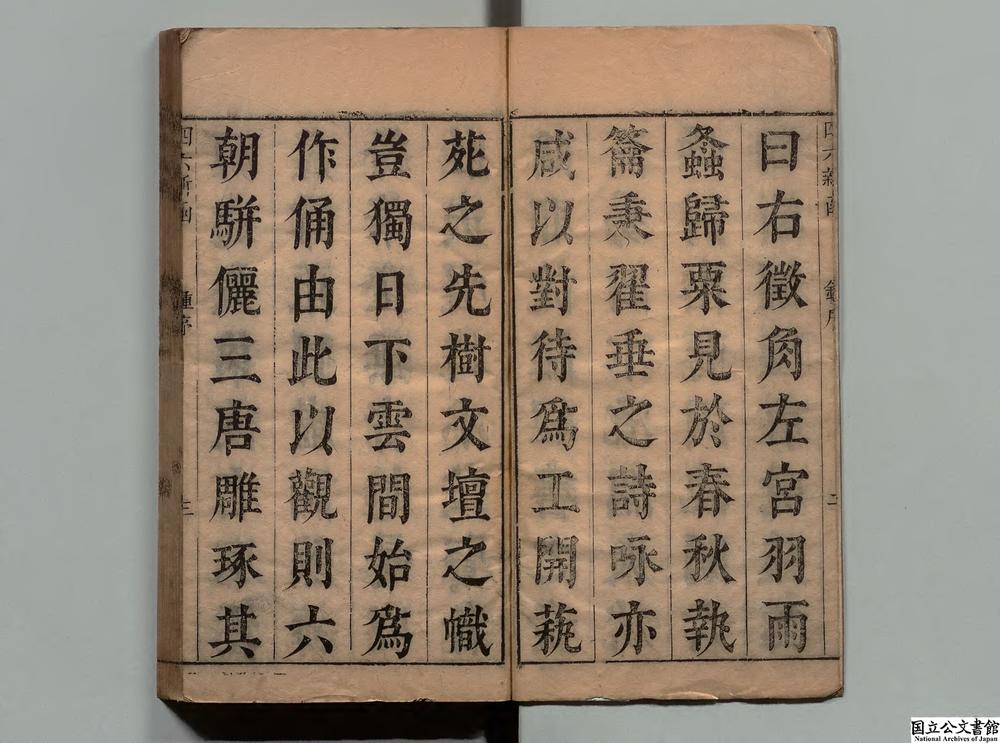 曰右徵角左宮羽雨
螽歸粟見於春秋執
籥秉翟垂之詩咏亦
咸以對待爲工開蓺
苑之先樹文壇之幟
豈獨日下雲間始爲
作俑由此以觀則六
朝駢儷三唐雕琢其
四六新函 鍾序 二
四六新函 鍾序 三
国立公文書館
National Archives of Japan